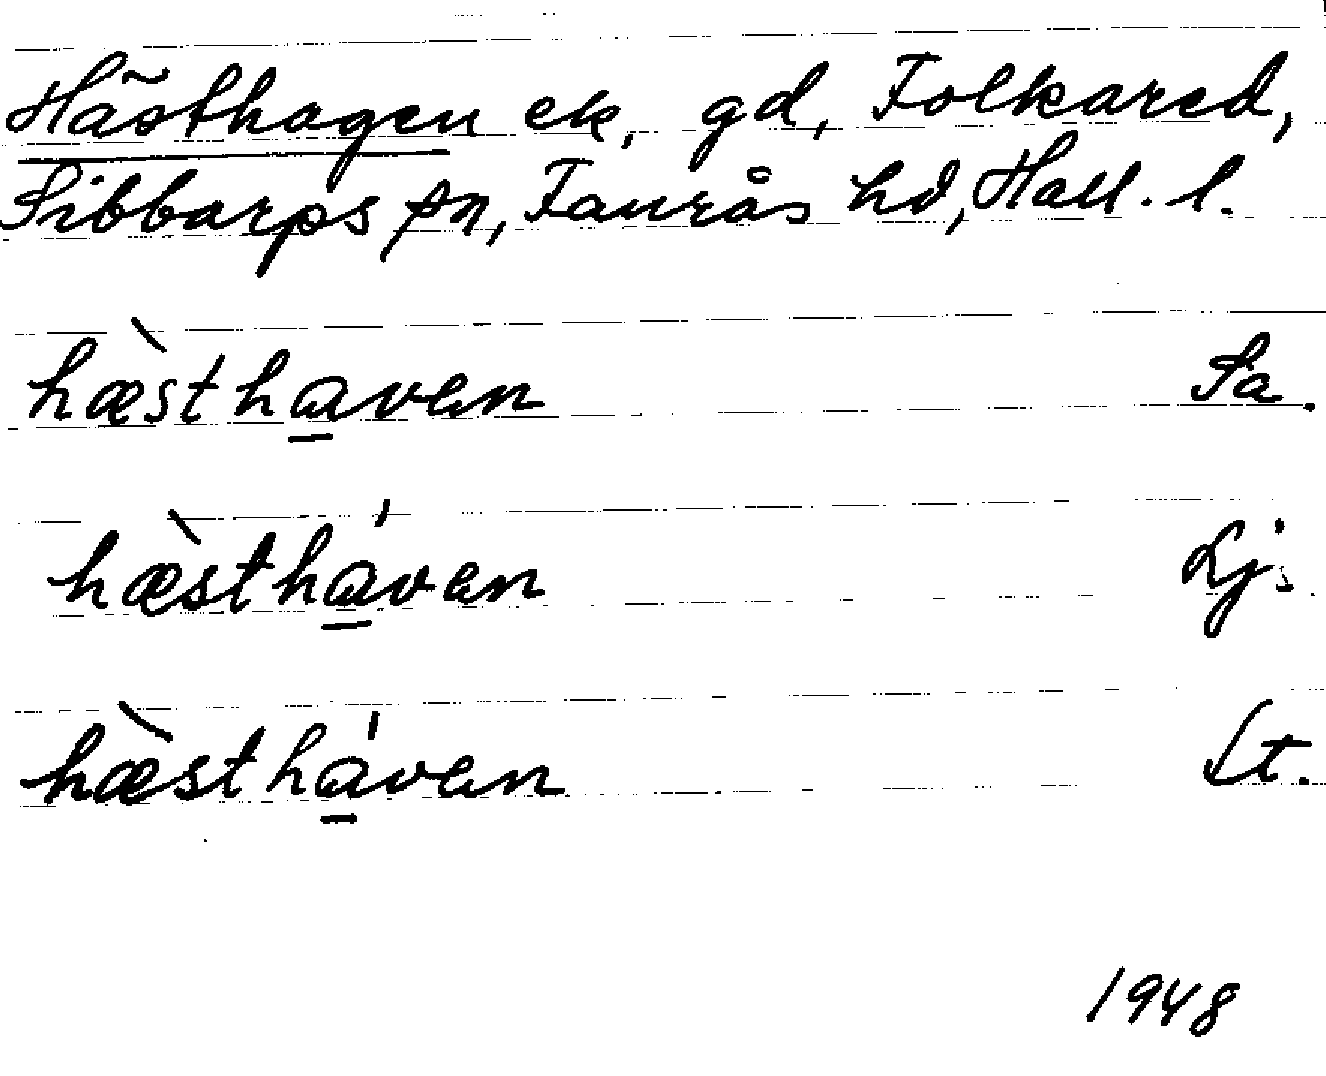 Hästhagen ek, gd, Folkared,
Sibbarps sn, Faurås hd, Hall. l.
hæ̀stha̲ven Sa.
hæ̀stha̲̍ven Lj.
hæ̀stha̲̍ven Lt.
1948